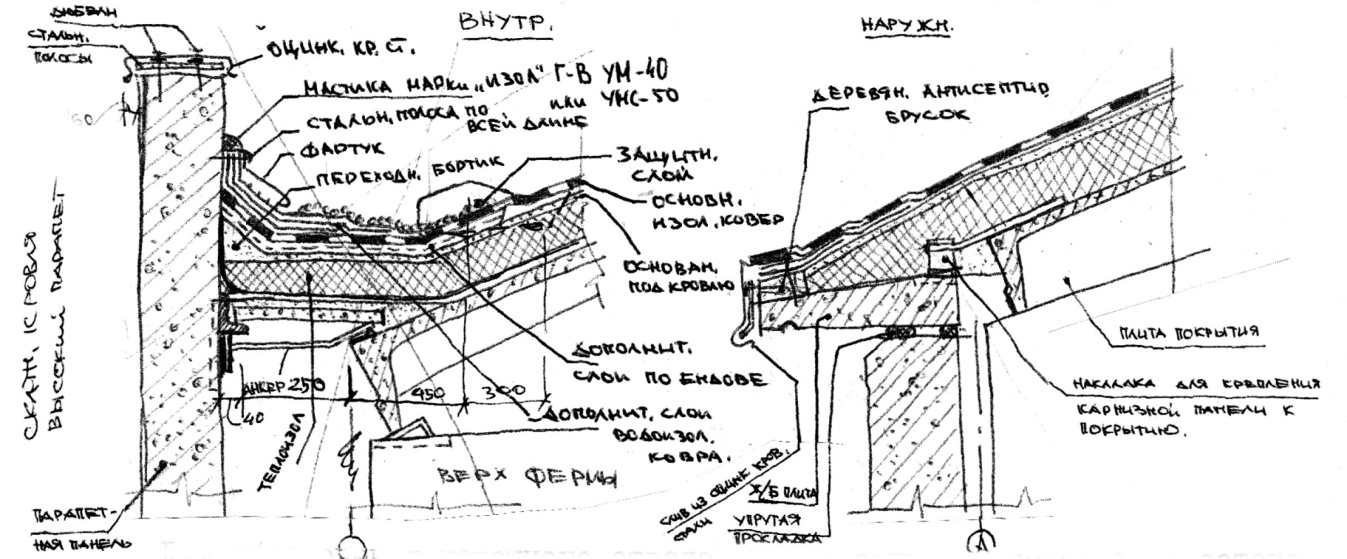 ВНУТР.
НАРУЖН.
ДЮБЕЛИ
СТАЛЬН.
ПОЛОСЫ
ОЦИНК. КР. СТ.
МАСТИКА МАРКИ „ИЗОЛ" Г-В УМ-40
ИЛИ УМС-50
СТАЛЬН. ПОЛОСА ПО
ВСЕЙ ДЛИНЕ
ФАРТУК
ПЕРЕХОДН. БОРТИК
ЗАЩИТН.
СЛОЙ
ОСНОВН.
ИЗОЛ. КОВЕР
ОСНОВАН.
ПОД КРОВЛЮ
ДОПОЛНИТ.
СЛОИ ПО ЕНДОВЕ
ДОПОЛНИТ. СЛОИ
ВОДОИЗОЛ.
КОВРА.
60
АНКЕР 250
450
300
40
ТЕПЛОИЗОЛ
ВЕРХ ФЕРМЫ
ПАРАПЕТ-
НАЯ ПАНЕЛЬ
СКАТН. КРОВЛЯ
ВЫСОКИЙ ПАРАПЕТ
ДЕРЕВЯН. АНТИСЕПТИР.
БРУСОК
ПЛИТА ПОКРЫТИЯ
НАКЛАДКА ДЛЯ КРЕПЛЕНИЯ
КАРНИЗНОЙ ПАНЕЛИ К
ПОКРЫТИЮ.
СЛИВ ИЗ ОЦИНК. КРОВ.
СТАЛИ
Ж/Б ПЛИТА
УПРУГАЯ
ПРОКЛАДКА
А